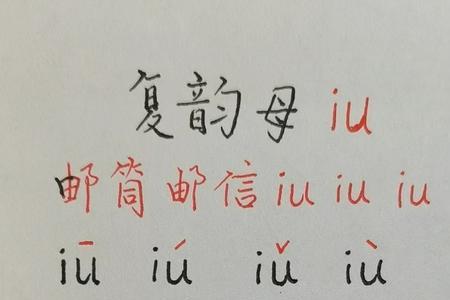 复韵母 iu
邮筒邮信 iu iu iu
iū iú iǔ iù